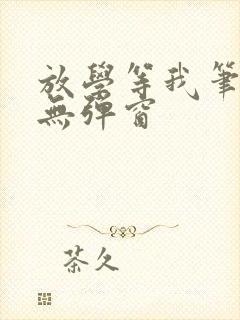 放學等我筆
無彈窗
茶久